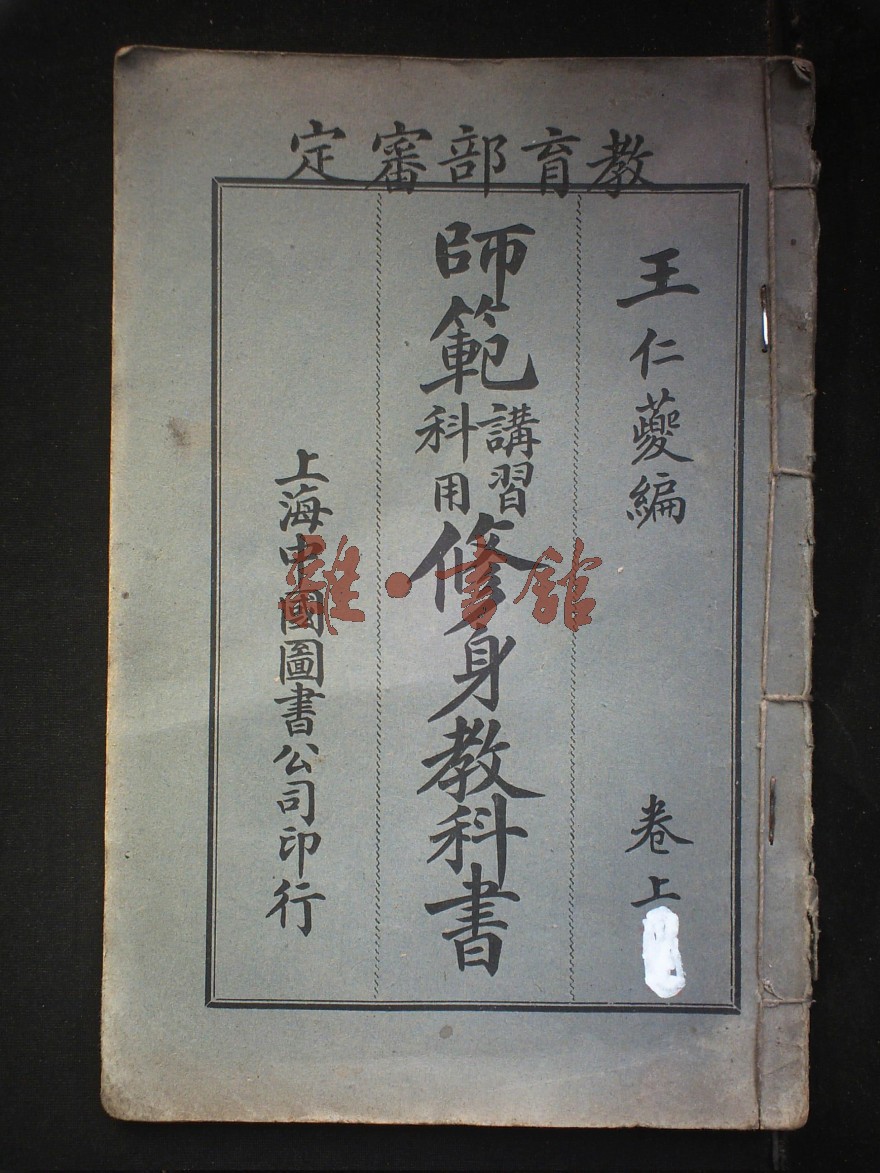 教育部審定
王仁夔編
卷上
師範講習科用修身教科書
上海中國圖書公司印行
雜·書館